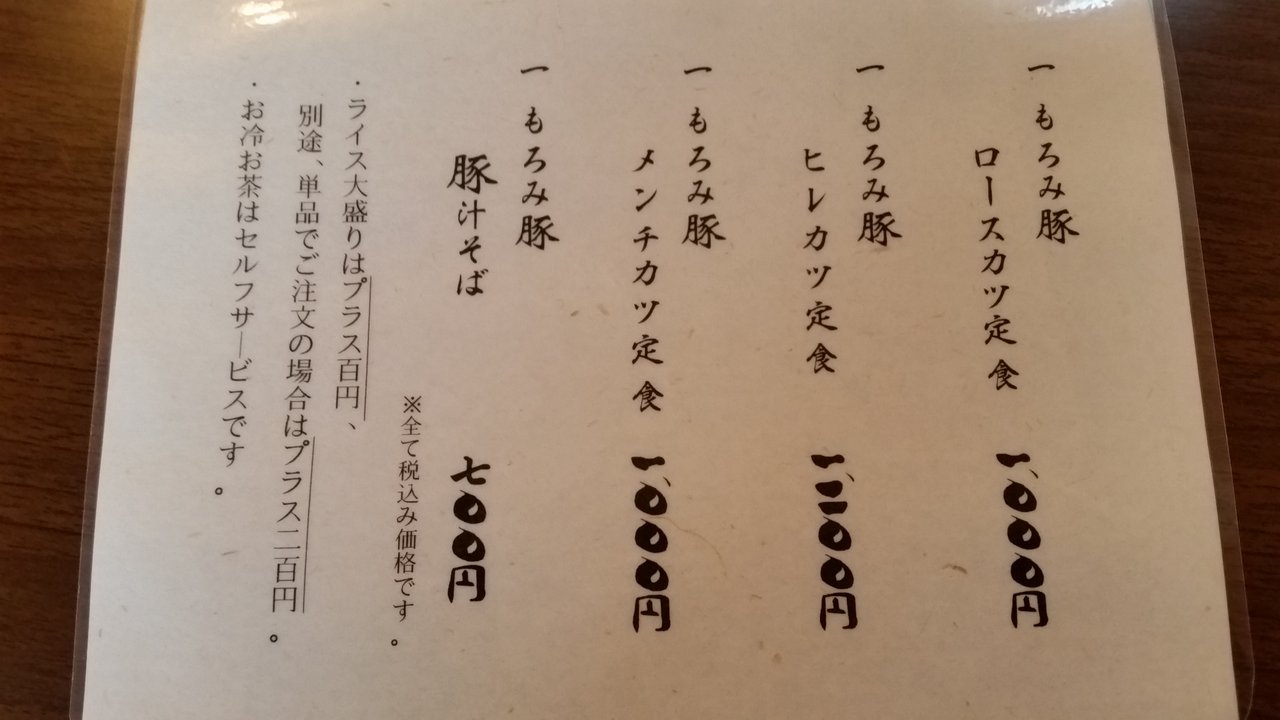 一 もろみ豚
ロースカツ定食 一、〇〇〇円
一 もろみ豚
ヒレカツ定食 一、二〇〇円
一 もろみ豚
メンチカツ定食 一、〇〇〇円
一 もろみ豚
豚汁そば 七〇〇円
※全て税込み価格です。
・ライス大盛りはプラス百円、
別途、単品でご注文の場合はプラス二百円。
・お冷お茶はセルフサービスです。